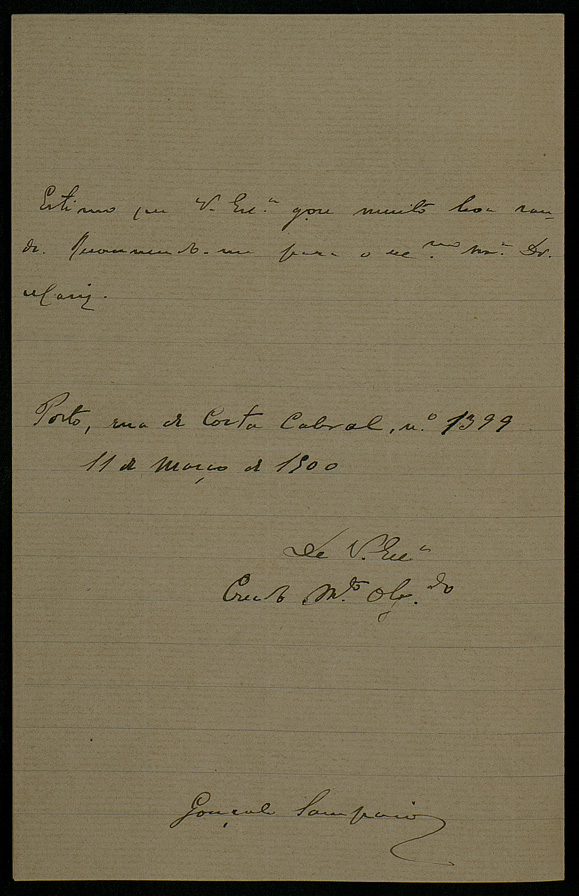 Estimo que V. Ex.ª gose muito boa sau-
de. Recommendo-me para o ex.mo snr. Dr.
Mariz.
Porto, rua de Costa Cabral, n.º 1399
11 de Março de 1900
De V. Ex.ª
Cred.º M.to Obg.do
Gonçalo Sampaio